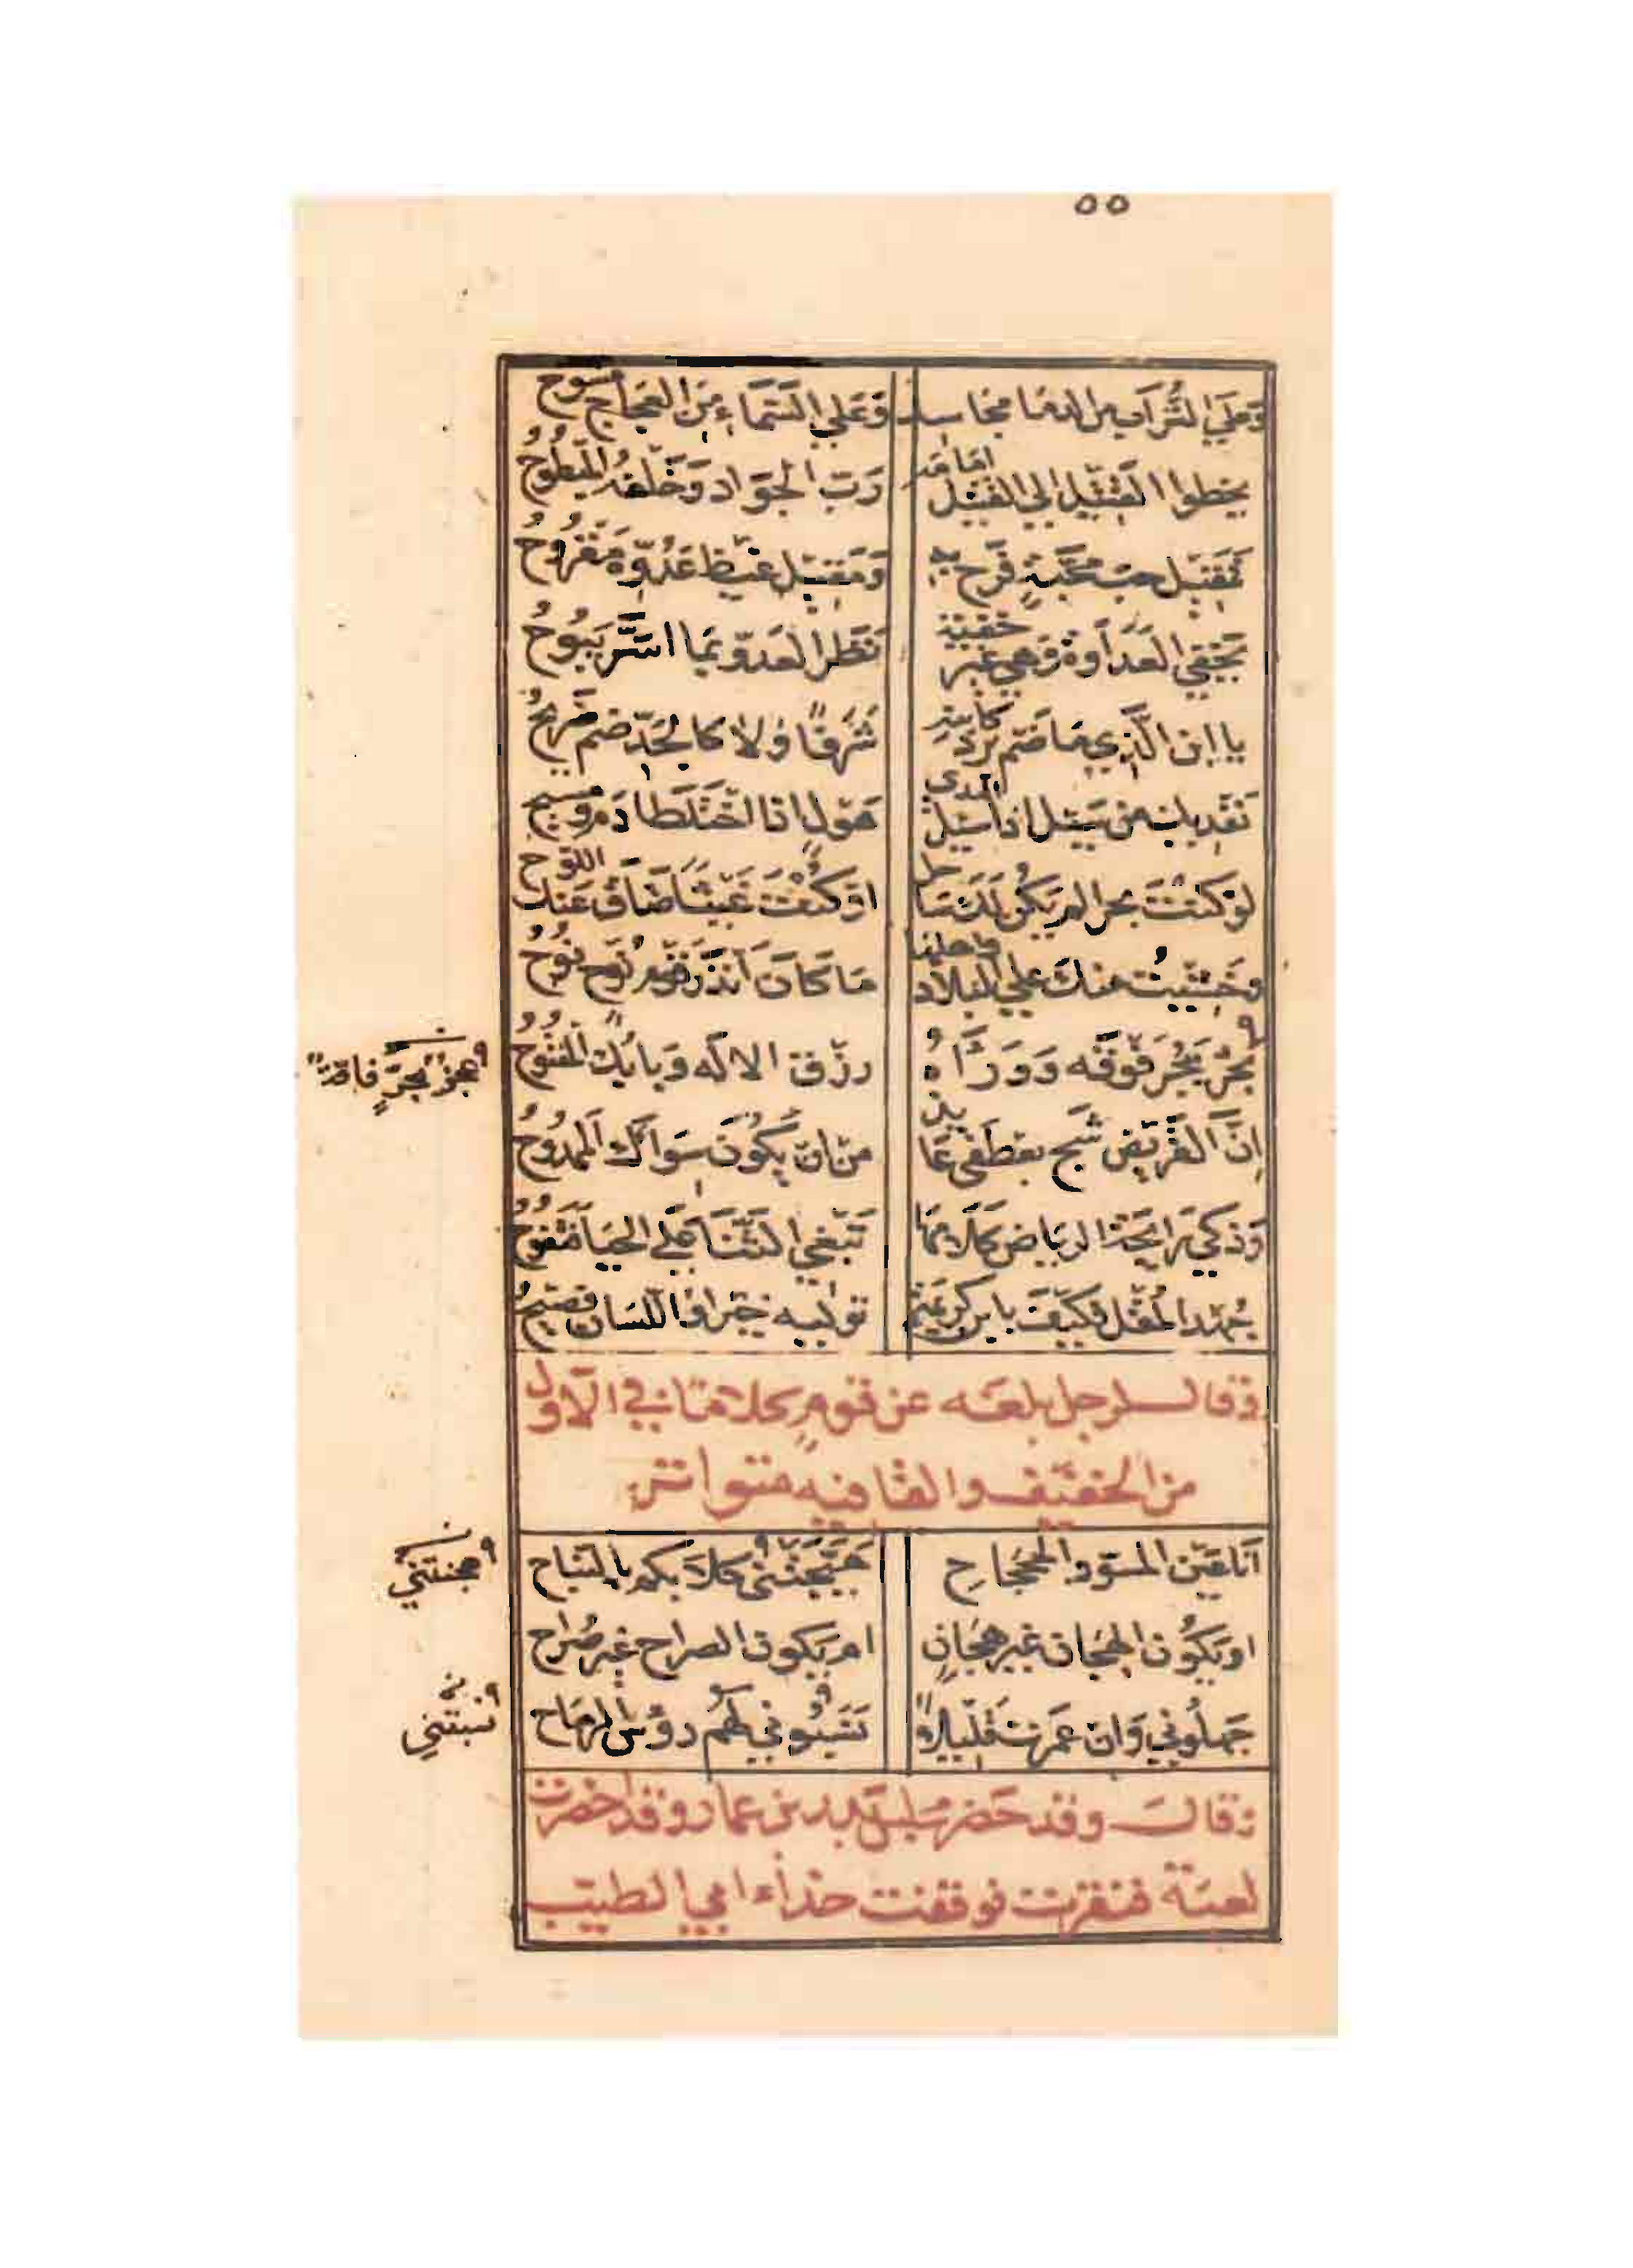 ٥٥
وَعَلَى التُّرَابِ من الدما مجاسد وَعَلي السَّمَاءِ مِنَ العَجَاجِ مسوح
يخطوا القَتِيل الي القتيل امامه رَبّ الجَوَاد وَخَلْفَهُ المَبْطُوحُ
فَمَقِيل حب مُحَبَّةٍ فَرِح به وَمَقِيل غيظ عَدُوِّهِ مَقْرُوحُ
يخفي العَدَاوة وَهي غير خفية نَظَر العدوّ بمَا اسَرَّ يَبُوحُ
يا ابن الَّذِي مَا ضَم برد كابنه شَرَفًا وَلا كالجَدِّ ضم ضَرِيحُ
نَفْديك من سَيل اذا سُئِل الندى هَوْلٍ اذا اخْتَلَطا دَم ومسيح
لَوْ كنْتَ بحرا لم يَكُن لَكَ سَاحل اوْ كُنْتَ غَيثا ضَاقَ عَنك اللوح
وخَشِيتُ منكَ علي البلاد واهلها مَا كَانَ أَنْذَرَ قَوْم نُوح نُوحُ
عَجْز بحُر فَوقه وَوَرَاءَهُ رزْق الالَه وَبابُكَ المَفْتُوحُ
٩ عجزٌ بحرٍّ فاقةٌ
إنَّ القَرِيض شَج بعِطفي عَائذ مِنْ ان يَكُونَ سَوَاكَ المَمْدُوحُ
وَذكي رَايحَة الرياض كَلامهَا تَبْغي الثَّنَا عَلَى الحَيَا فَتَفُوحُ
جُهْد المُقِل فكَيْفَ بابن كريمَة توليه خيرا وَاللّسان فَصِيحُ
وقال لرجل بلغه عن قومٍ كلامًا في الاوّل
من الخفيف والقافيه متواتر
أَنا عَين المسَوّد الجَحْجَاح هَيَّجَتْني كلابكم بالنبَاح
٩ هجنتني
اويَكُون الهجَان غير هجَانٍ ام يَكون الصراح غير صُرَاح
جَهلُوني وَان عَمرت قَليلاً نَسَبُوني لهُم رؤس الرمَاح
٩ نسبتني
وقال وقد حَضَر مجلس بدر بن عمار وقد احضرت
لعبة فنقرت فوقفت حذاء ابي الطيب